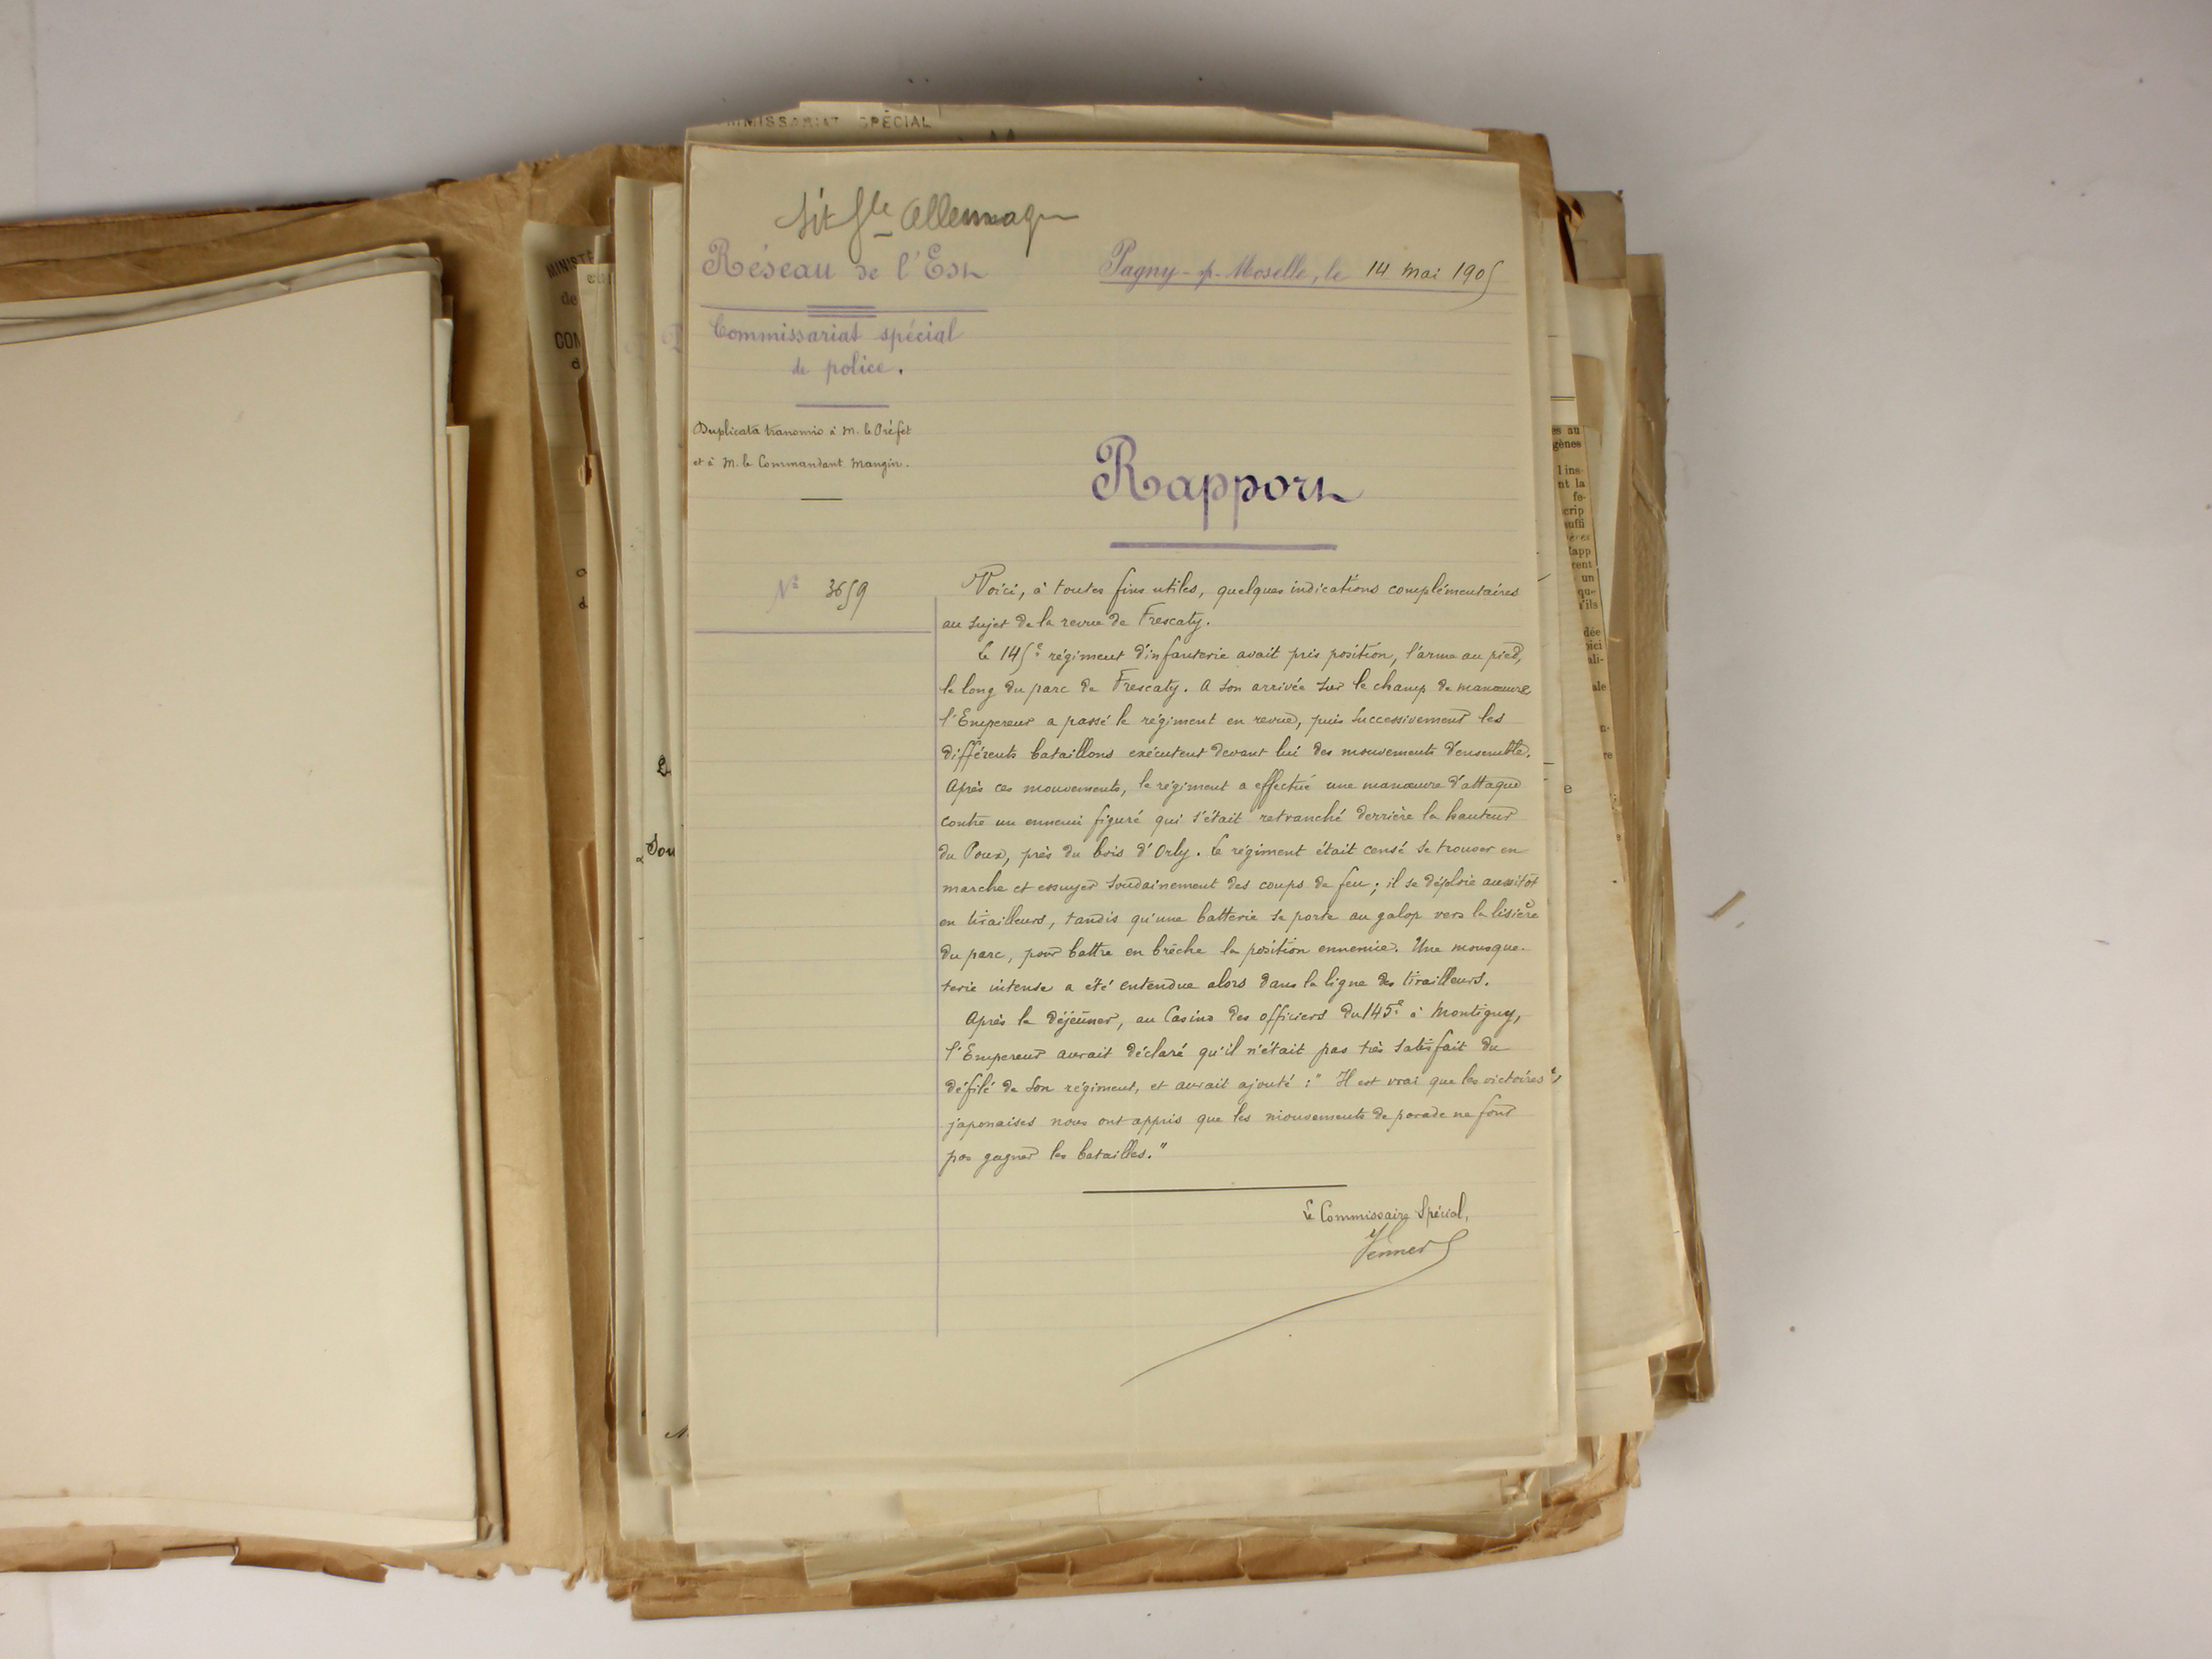 MMISSARIAT SPÉCIAL
Sit Gle Allemagne
Réseau de l'Est
Pagny-s-Moselle, le 14 mai 1905
Commissariat spécial
de police.
Duplicata transmis à M. le Préfet
et à M. le Commandant Mangin.
Rapport
No 3659
Voici, à toutes fins utiles, quelques indications complémentaires
au sujet de la revue de Frescaty.
Le 145e régiment d'infanterie avait pris position, l'arme au pied,
le long du parc de Frescaty. A son arrivée sur le champ de manœuvre
l'Empereur a passé le régiment en revue, puis successivement les
différents bataillons exécutent devant lui des mouvements d'ensemble.
Après ces mouvements, le régiment a effectué une manœuvre d'attaque
contre un ennemi figuré qui s'était retranché derrière la hauteur
du Poux, près du bois d'Orly. Le régiment était censé se trouver en
marche et essuyer soudainement des coups de feu ; il se déploie aussitôt
en tirailleurs, tandis qu'une batterie se porte au galop vers la lisière
du parc, pour battre en brèche la position ennemie. Une mousque-
terie intense a été entendue alors dans la ligne des tirailleurs.
Après le déjeûner, au Casino des officiers du 145e à Montigny,
l'Empereur aurait déclaré qu'il n'était pas très satisfait du
défilé de son régiment, et aurait ajouté : " Il est vrai que les victoires
japonaises nous ont appris que les mouvements de parade ne font
pas gagner les batailles."
Le Commissaire Spécial,